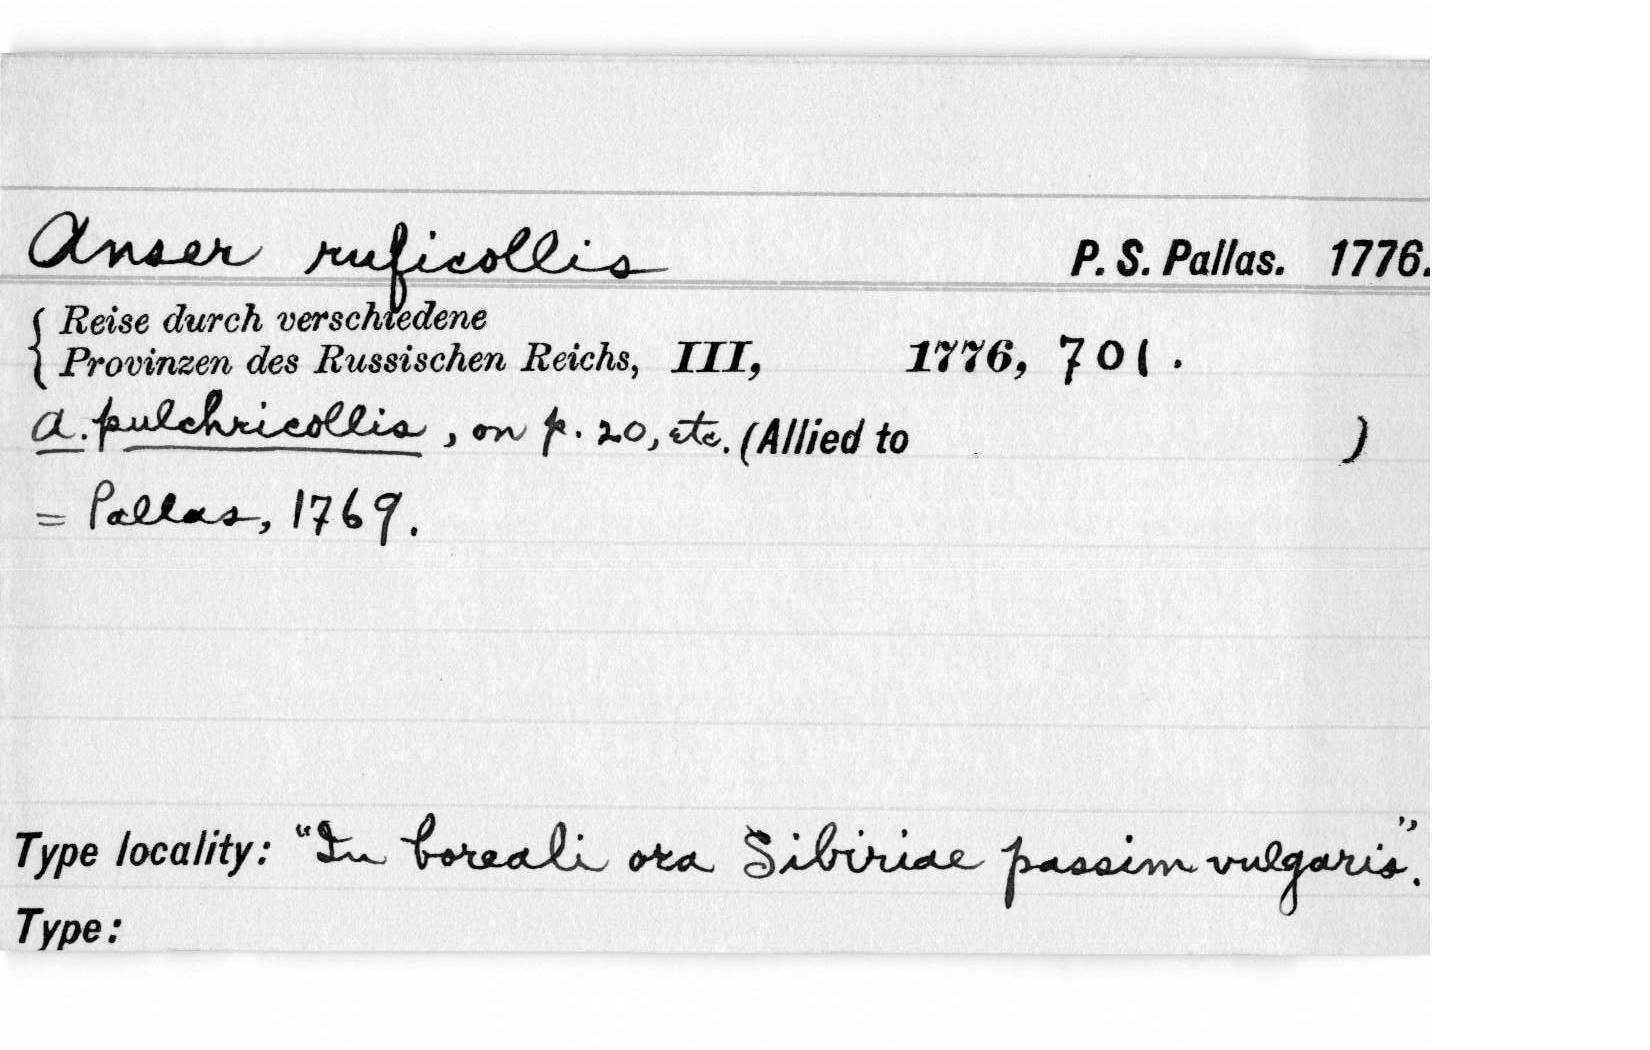 Anser ruficollis P. S. Pallas. 1776.
{ Reise durch verschiedene
Provinzen des Russischen Reichs, III, 1776, 701.
A. pulchricollis, on p. 20, etc. (Allied to )
= Pallas, 1769.
Type locality: "In boreali ora Sibiriae passim vulgaris".
Type: